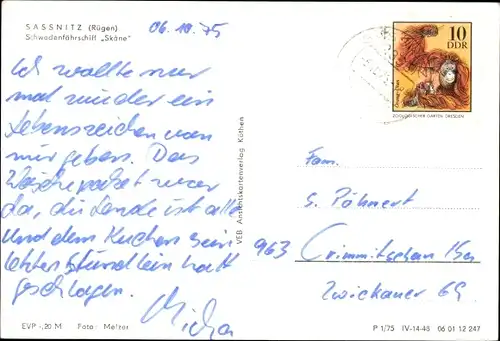 SASSNITZ (Rügen)
Schwedenfährschiff „Skåne"
06.10.75
Ich wollte nur
mal wieder ein
Lebenszeichen von
mir geben. Das
Wäschepaket war
da, die Lende ist alle
Und dem Kuchen sein
letztes Stündlein hat
geschlagen.
Micha
EVP -,20 M Foto: Melzer
VEB Ansichtskartenverlag Köthen
10
DDR
Orang-Utan
ZOOLOGISCHER GARTEN DRESDEN
Fam.
S. Pöhnert
963 Crimmitschau
Zwickauer 69
P 1/75 IV-14-48 06 01 12 247